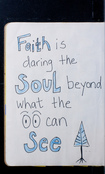 Faith is
daring the
Soul beyond
what the
can
See